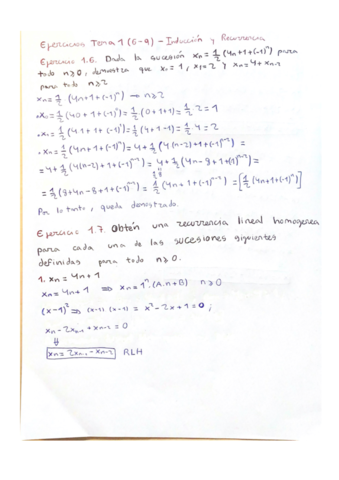 Ejercicios Tema 1 (6-9) - Inducción y Recurrencia
Ejercicio 1.6. Dada la sucesión xn = 1/2 (4n+1+(-1)^n) para
todo n≥0, demuestra que x0=1, x1=2 y xn=4+xn-2
para todo n≥2
xn = 1/2 (4n+1+(-1)^n) → n≥2
· x0 = 1/2 (4·0+1+(-1)^0) = 1/2 (0+1+1) = 1/2 2 = 1
· x1 = 1/2 (4·1+1+(-1)^1) = 1/2 (4+1-1) = 1/2 4 = 2
· xn = 1/2 (4n+1+(-1)^n) = 4+1/2 (4(n-2)+1+(-1)^n-2) =
= 4+1/2 (4(n-2)+1+(-1)^n-2) = 4+1/2 (4n-8+1+(-1)^n-2) =
= 1/2 (8+4n-8+1+(-1)^n-2) = 1/2 (4n+1+(-1)^n-2) = [1/2 (4n+1+(-1)^n)]
Por lo tanto, queda demostrado.
Ejercicio 1.7. Obtén una recurrencia lineal homogenea
para cada una de las sucesiones siguientes
definidas para todo n≥0.
1. xn = 4n+1
xn = 4n+1 ⟹ xn = 1^n (A·n+B) n≥0
(x-1)^2 ⟹ (x-1) (x-1) = x^2-2x+1=0;
xn-2xn-1+xn-2=0
⇓
xn=2xn-1-xn-2 RLH